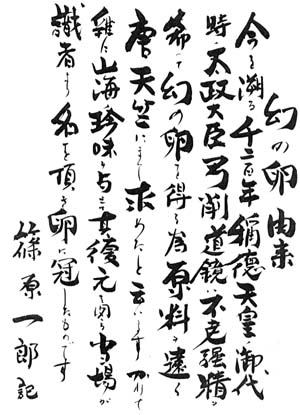 幻の卵由来
今を遡る千二百年稱徳天皇の御代
時の太政大臣弓削道鏡 不老強精を
希って幻の卵を得る為原料を遠く
唐天竺にまで求めたと云います
雞に山海の珍味を与え其復元を図る当場が
識者より名を頂き卵に冠したものです
篠原一郎記